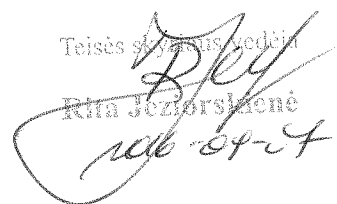 Teisės skyriaus vedėja
Rita Jeziorskienė
2016-07-27